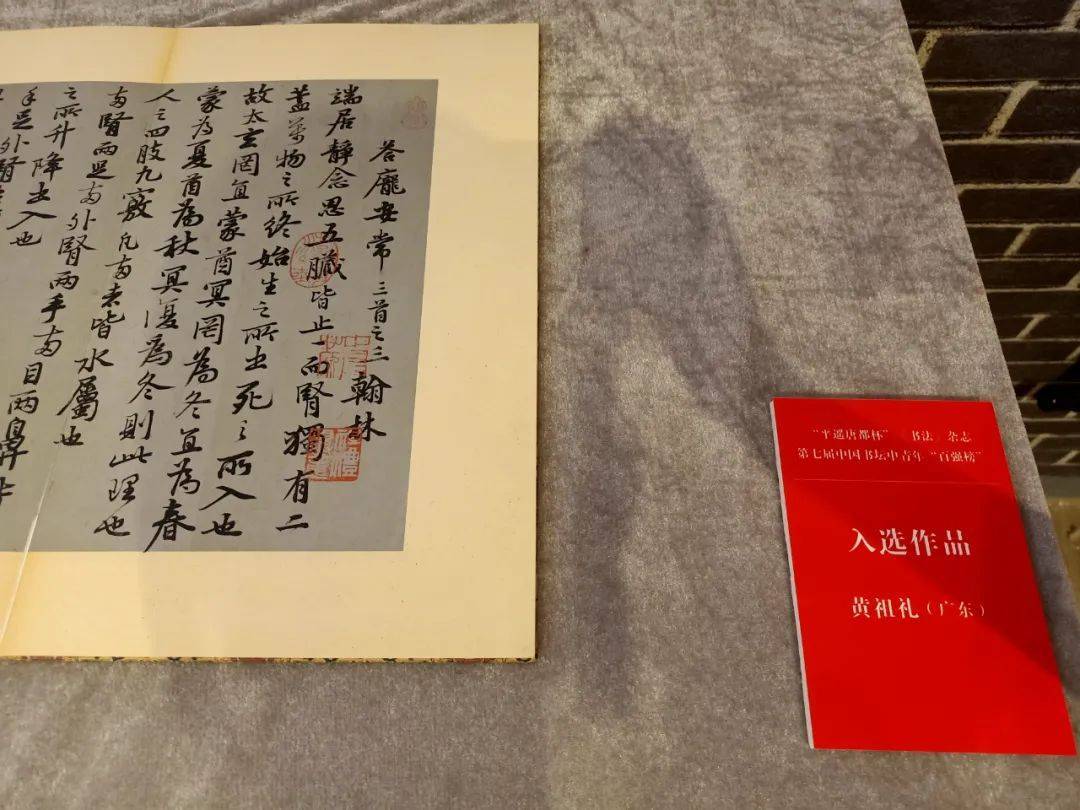 答龐安常三首之三 翰林
端居靜念思五臟皆止一而腎獨有二
蓋萬物之所終始生之所出死之所入也
故太玄罔直蒙酋冥罔為冬直為春
蒙為夏酋為秋冥復為冬則此理也
人之四肢九竅凡兩者皆水屬也
兩腎兩足兩外腎兩手兩目兩鼻
之所升降出入也
手足外腎
“平遥唐都杯”《书法》杂志
第七届中国书坛中青年“百强榜”
入选作品
黄祖礼（广东）